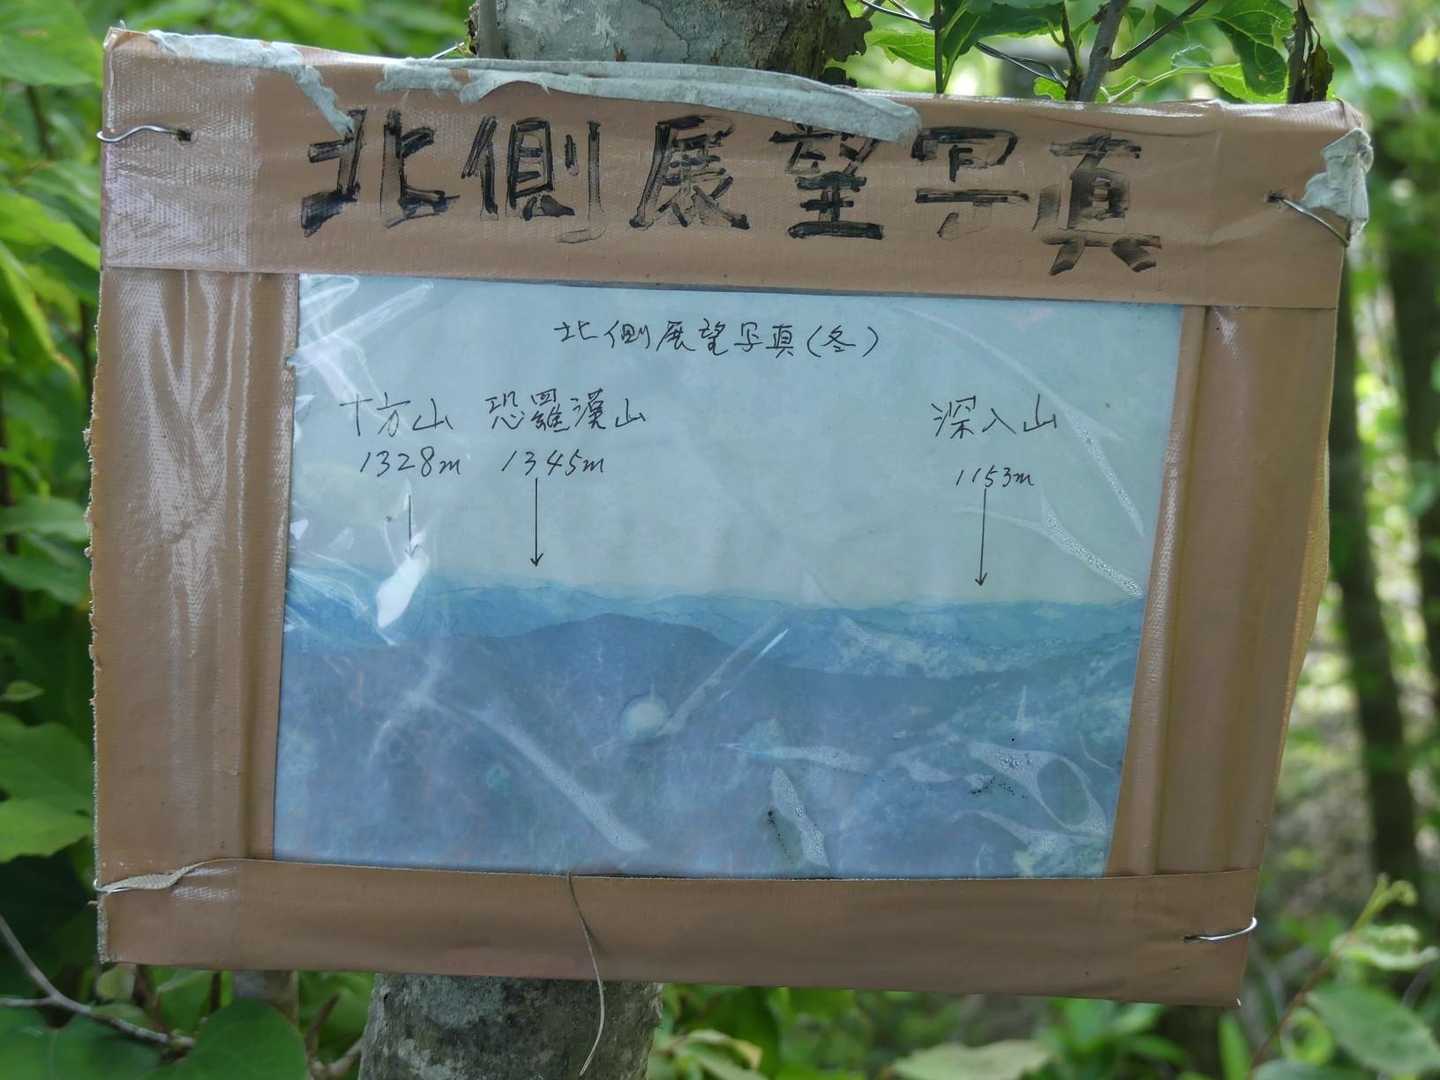 北側展望写真
北側展望写真(冬)
十方山 恐羅漢山 深入山
1328m 1345m 1153m